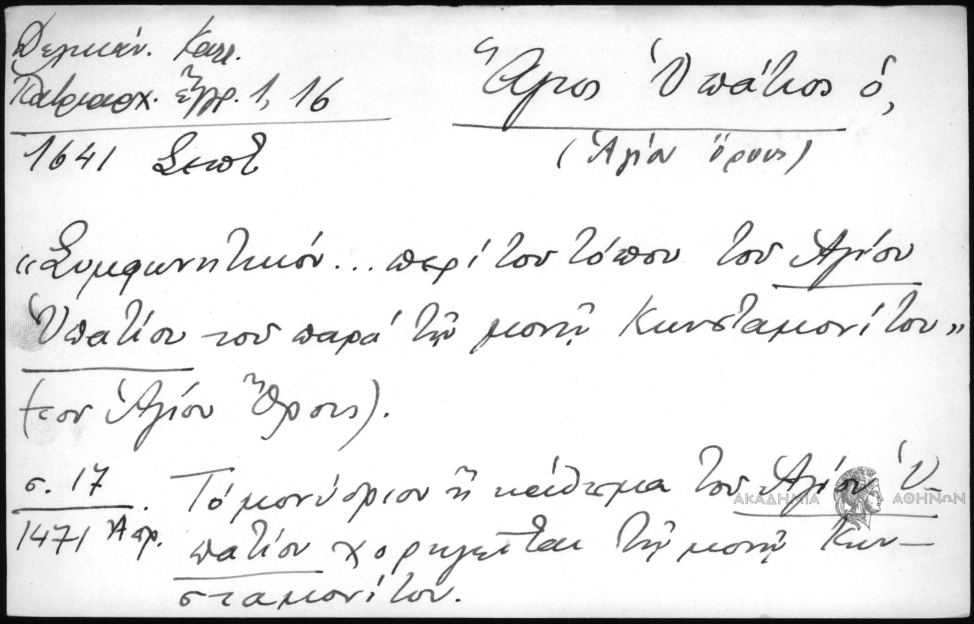 Δελικάν. Κατ.
Πατριαρχ. ἔγγρ. 1, 16
Ἅγιος Ὑπάτιος ὁ,
1641 Σεπτ
(Ἁγίου ὄρους)
«Συμφωνητικόν... περί τοῦ τόπου τοῦ Ἁγίου
Ὑπατίου τοῦ παρά τῇ μονῇ Κωνσταμονίτου»
(τοῦ Ἁγίου Ὄρους).
σ. 17
1471 Ἀπρ.
Τό μονύδριον ἤ κάθισμα τοῦ Ἁγίου Ὑ-
πατίου χορηγεῖται τῇ μονῇ Κων-
σταμονίτου.
ΑΚΑΔΗΜΙΑ ΑΘΗΝΩΝ